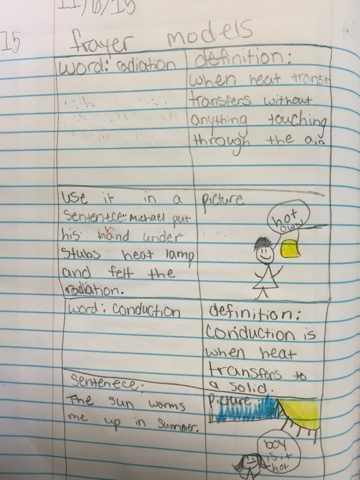 11/6/15
15
frayer models
word: radiation
definition:
when heat
transfers without
anything touching
through the air.
use it in a
sentence: Michael put
his hand under
stubs heat lamp
and felt the
radiation.
picture
hot
word: conduction
definition:
conduction is
when heat
transfers to
a solid.
sentenece:
The sun warms
me up in summer.
picture
boy
is it
hot